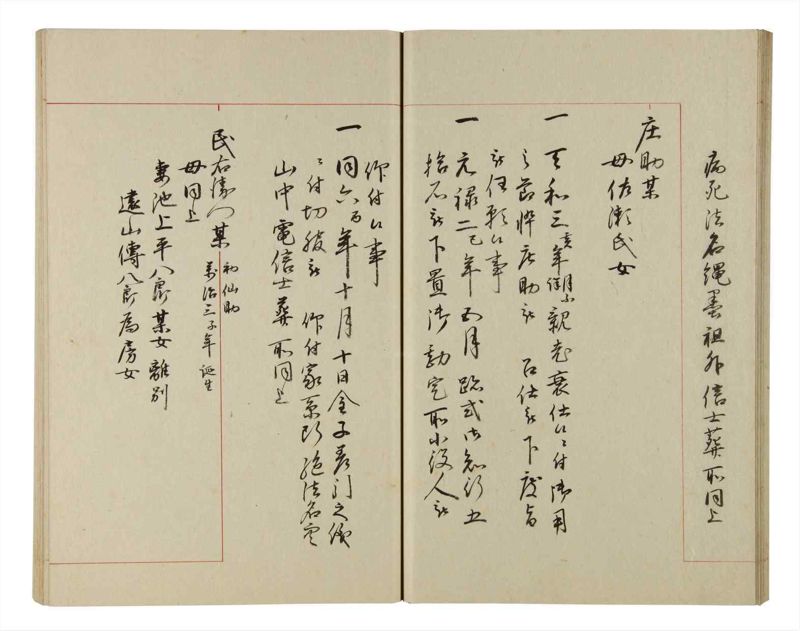 病死法名縄墨祖外信士葬所同上
庄助某
母佐瀬氏女
一天和三亥年 親老衰仕候ニ付御用
之節悴庄助被 召仕被下度旨
被任願候事
一元禄二巳年五月跡式御知行五
拾石被下置御勘定所小役人被
仰付候事
一同六酉年十月十日金子差引之儀
ニ付切腹被 仰付家系断絶法名雲
山中電信士葬所同上
民右衛門某 初仙助
萬治三子年誕生
母同上
妻池上平八郎某女離別
遠山傳八郎為房女